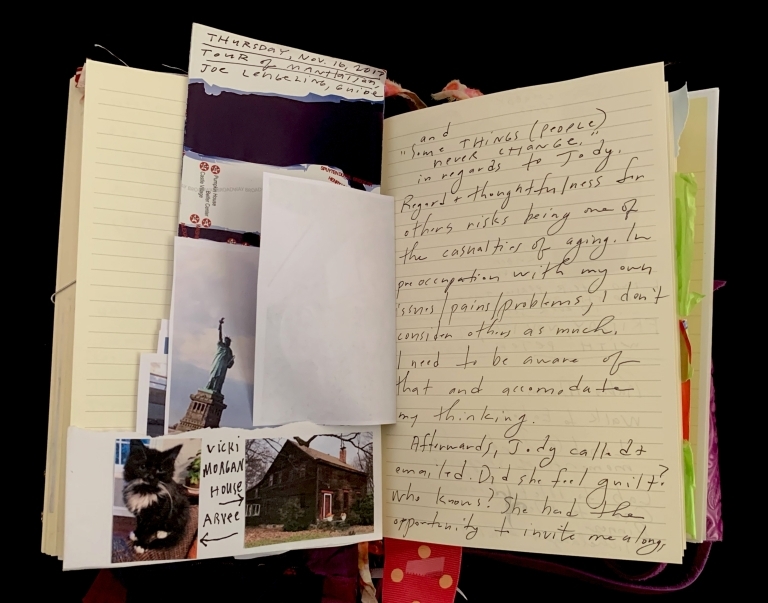 THURSDAY, NOV. 16, 2017
TOUR OF MANHATTAN
JOE LENGELING, GUIDE
Pumpkin House
Castle Village
VICKI
MORGAN
HOUSE
ARVEE
and
"Some THINGS (PEOPLE)
never CHANGE."
in regards to Jody.
Regard & thoughtfulness for
others risks being one of
the casualties of aging. In
preoccupation with my own
issues/pains/problems, I don't
consider others as much.
I need to be aware of
that and accomodate
my thinking.
Afterwards, Jody called &
emailed. Did she feel guilt?
Who knows? She had the
opportunity to invite me along,